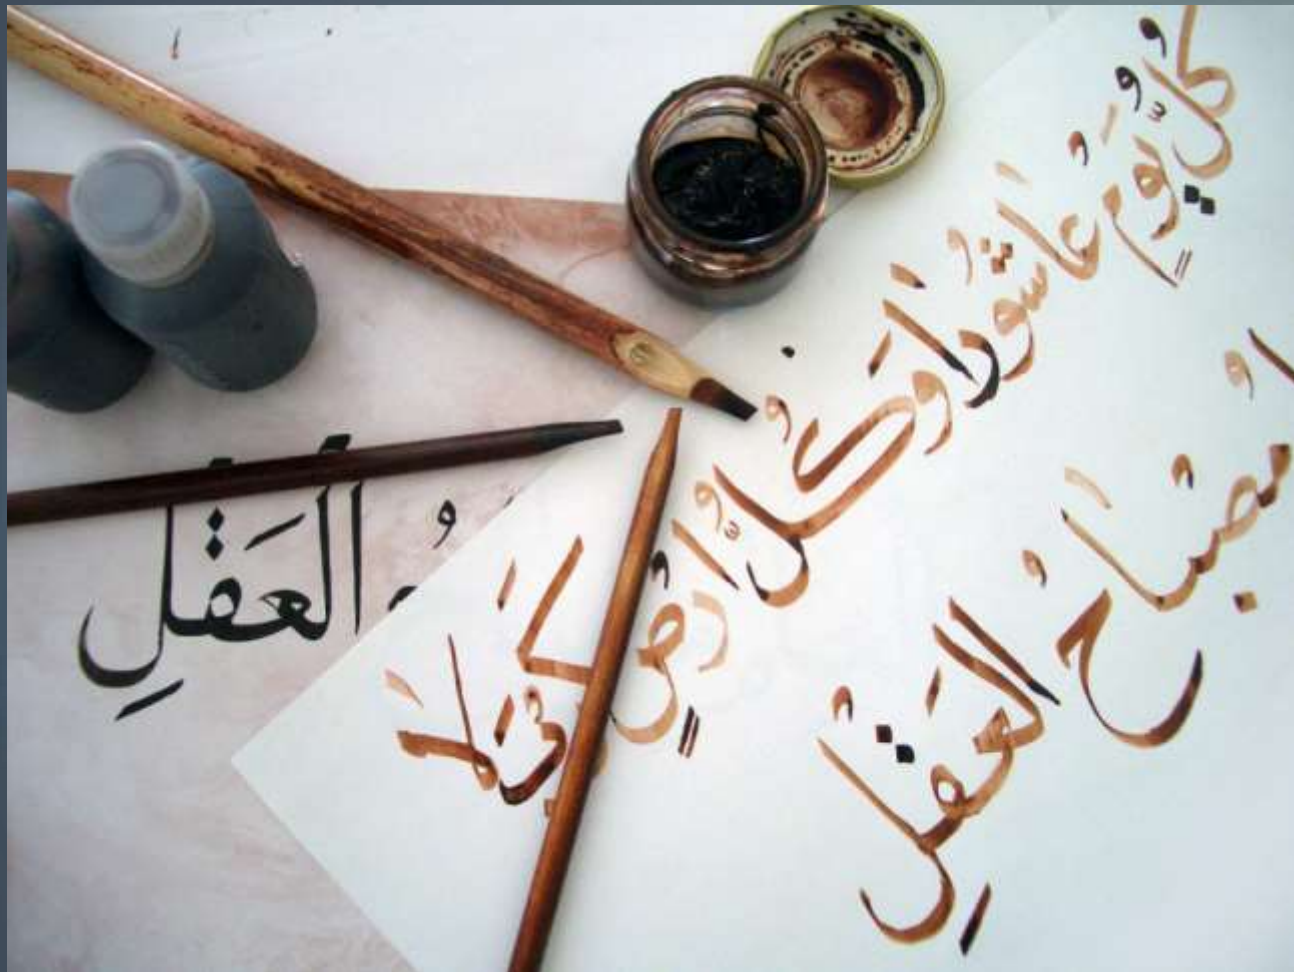 كُلُّ يَوْمٍ عَاشُورَا وَكُلُّ اَرْضٍ كَرْبَلَا
مصْبَاحُ العَقْلِ
العَقلِ